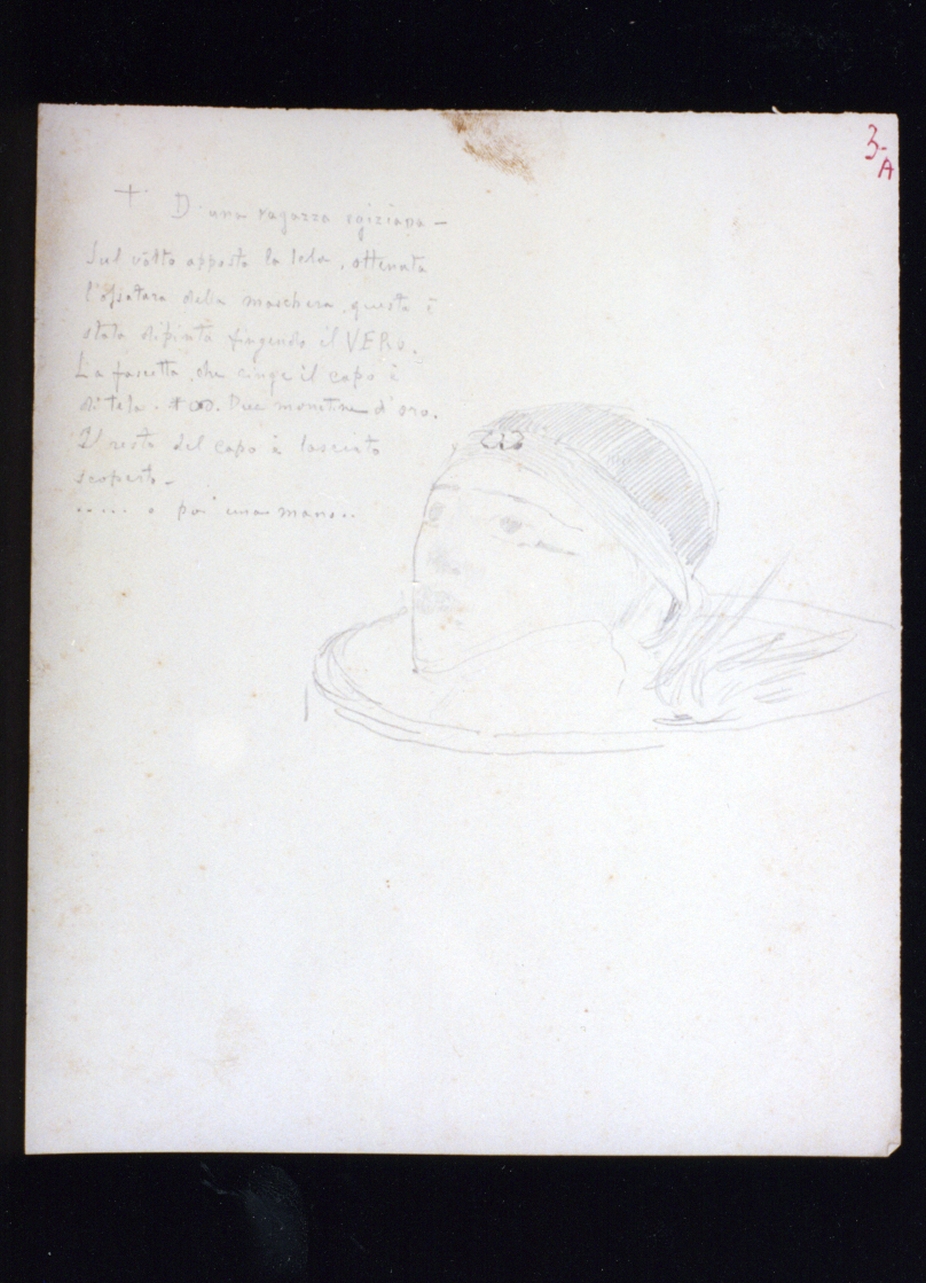 3-
A
+ D'una ragazza egiziana –
Sul volto apposta la tela, ottenuta
l'ossatura della maschera, questa è
stata dipinta fingendo il VERO.
La fascetta che cinge il capo è
di tela. Due monetine d'oro.
Il resto del capo è lasciato
scoperto –
..... e poi una mano..